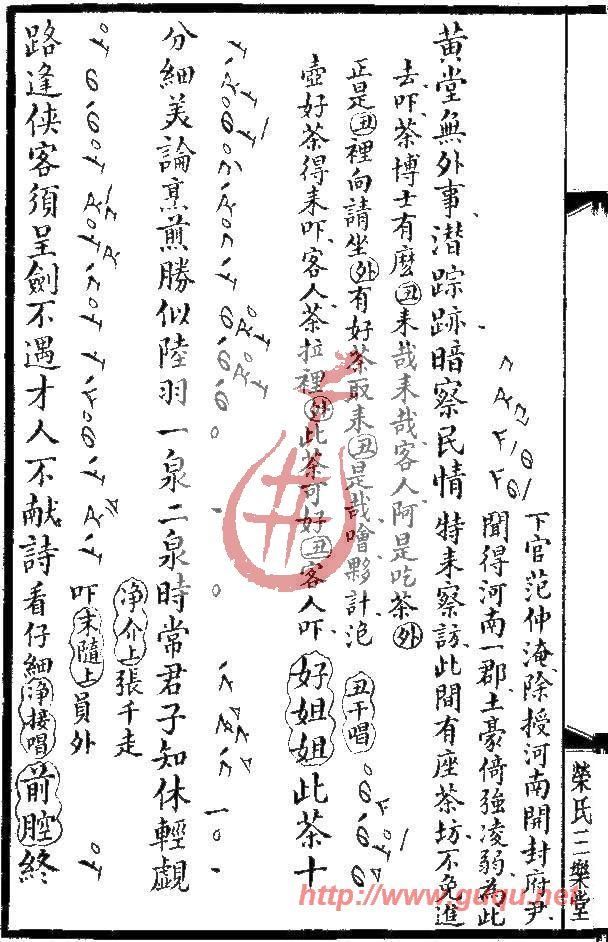 黄堂無外事潜踪跡暗察民情
下官范仲淹除授河南開封府尹
聞得河南一郡土豪倚強凌弱為此
特来察訪此間有座茶坊不免進
去吓茶博士有麽丑来哉来哉客人阿是吃茶外
正是丑裡向請坐外有好茶取来丑是哉噲夥計泡
壺好茶得来吓客人茶拉裡外此茶可好丑客人吓
丑干唱
好姐姐此茶十
分細美論烹煎勝似陸羽一泉二泉時常君子知休輕覷
净介上張千走
吓末隨上員外
路逢俠客須呈劍不遇才人不献詩看仔細净接唱前腔終
榮氏三樂堂
http://www.guqu.net